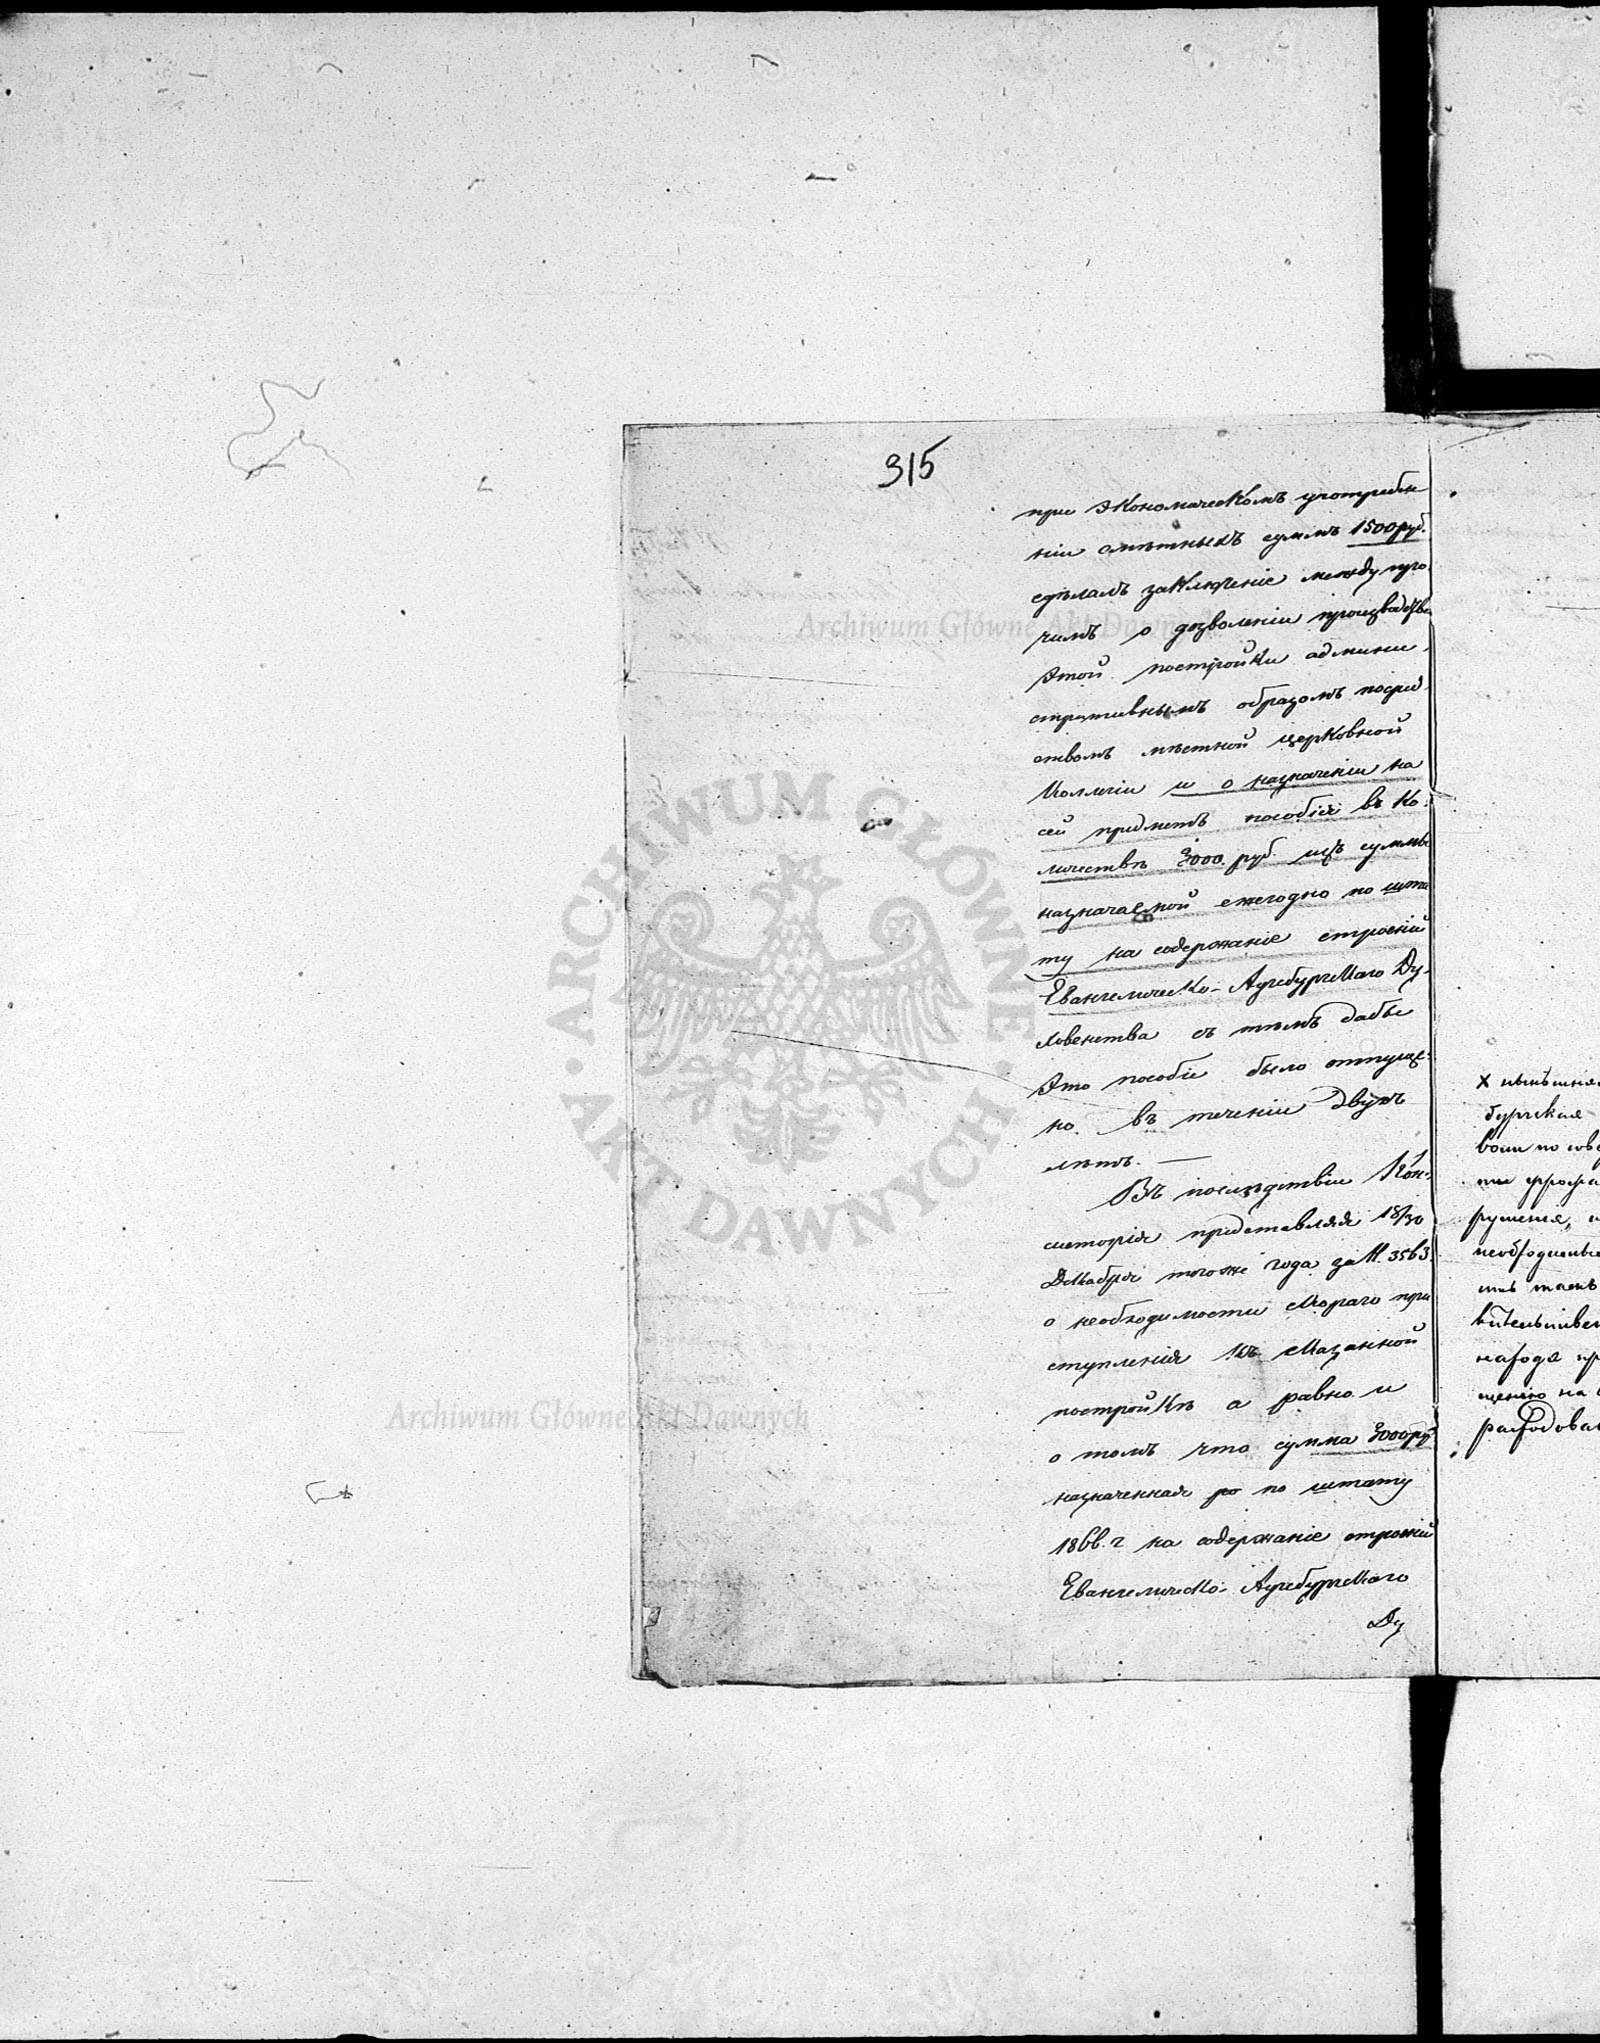 315
при экономическомъ употребле
ніи смѣтныхъ суммъ 1500 руб.
сдѣлалъ заключеніе между про
чимъ о дозволеніи производства
этой постройки админи
стративнымъ образомъ посред
ствомъ мѣстной церковной
Коллегіи и о назначеніи на
сей предметъ пособія въ ко:
личествѣ 3000 руб. изъ суммы
назначаемой ежегодно по шта
ту на содержаніе строеній
Евангелическо-Аугсбургскаго Ду-
ховенства съ тѣмъ дабы
это пособіе было отпуще:
но въ теченіи двухъ
лѣтъ. —
Въ послѣдствіи Кон:
систорія представляя 18/30
Декабря тогоже года за №. 3563.
о необходимости скораго при
ступленія къ сказанной
постройкѣ а равно и
о томъ что сумма 3000 руб
назначенная по штату
1866. г на содержаніе строеній
Евангелическо-Аугсбургскаго
Ду
х нынѣшня
бургская
ты
рушенія,
необходимы
имъ такъ
народа пр
щенію на
расходова
Archiwum Główne Akt Dawnych
Archiwum Główne Akt Dawnych
ARCHIWUM GŁÓWNE · AKT DAWNYCH ·